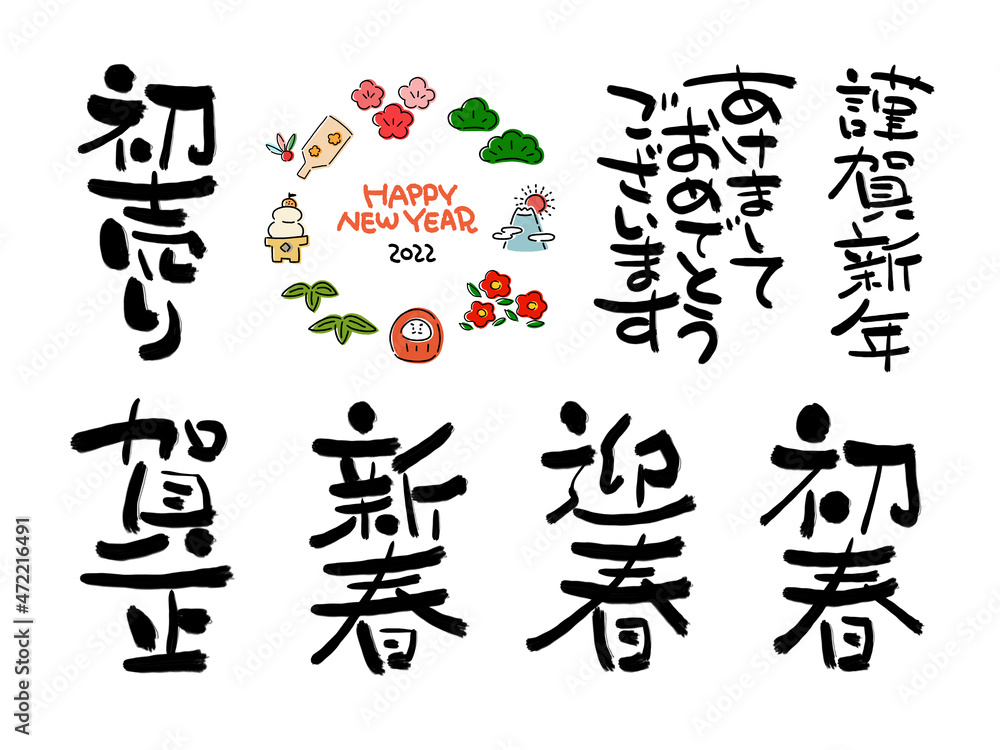 初売り
HAPPY
NEW YEAR
2022
あけまして
おめでとう
ございます
謹賀新年
賀正
新春
迎春
初春
Adobe Stock | #472216491